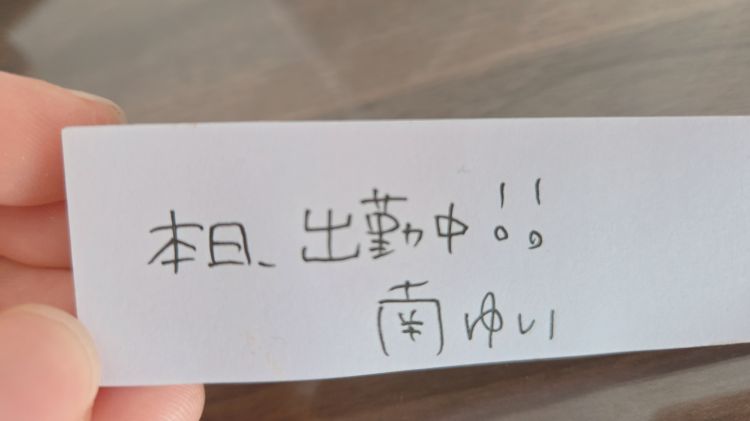 本日、出勤中!!
南ゆい